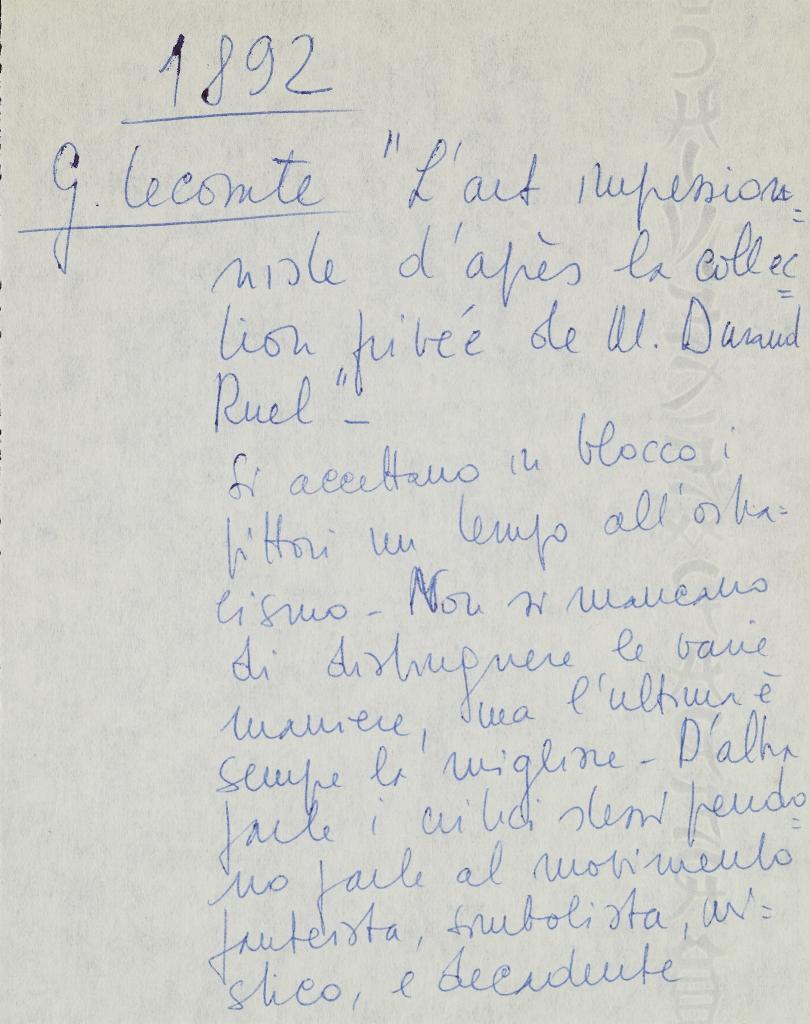 1892
G. Lecomte "L'art impression=
niste d'après la collec=
tion privéé de M. Durand
Ruel" –
Si accettano in blocco i
pittori un tempo all'ostra=
cismo – Non si mancano
di distinguere le varie
maniere, ma l'ultima è
sempre la migliore – D'altra
parte i critici stessi prendo=
no parte al movimento
panteista, simbolista, mi=
stico, e decadente